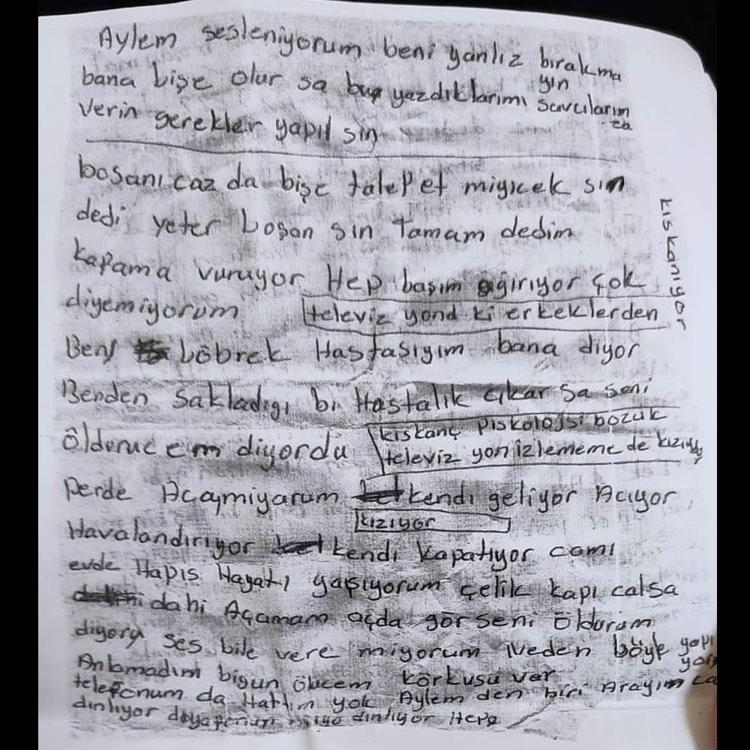 Aylem sesleniyorum beni yanlız bırakma
yın
bana bişe olur sa bu yazdıklarımı savcıların
za
verin gerekler yapıl sın
boşanıcaz da bişe talepet miyicek sin
dedi yeter boşan sin Tamam dedim
kapama vuruyor Hep başım ağırıyor çok
kıskanıyor
diyemiyorum televiz yond ki erkeklerden
Ben böbrek Hastasıyım bana diyor
Benden sakladıgı bi Hastalık çıkar sa seni
öldürüc em diyordu kıskanç piskolojsi bozuk
televiz yon izlememe de kızıyor
perde Açaymiyarum kendi geliyor Acıyor
kızıyor
Havalandırıyor kendi kapatıyor camı
evde Hapis Hayatı yaşıyorum çelik kapı calsa
dahi Açamam açda gör seni öldürüm
diyora ses bile vere miyorum Neden böyle yapı
yor
Anlamadım bigün ölücem korkusu var
telefonum da Hattım yok Aylem den biri Arayım ca
dinliyor dinliyor Hepo